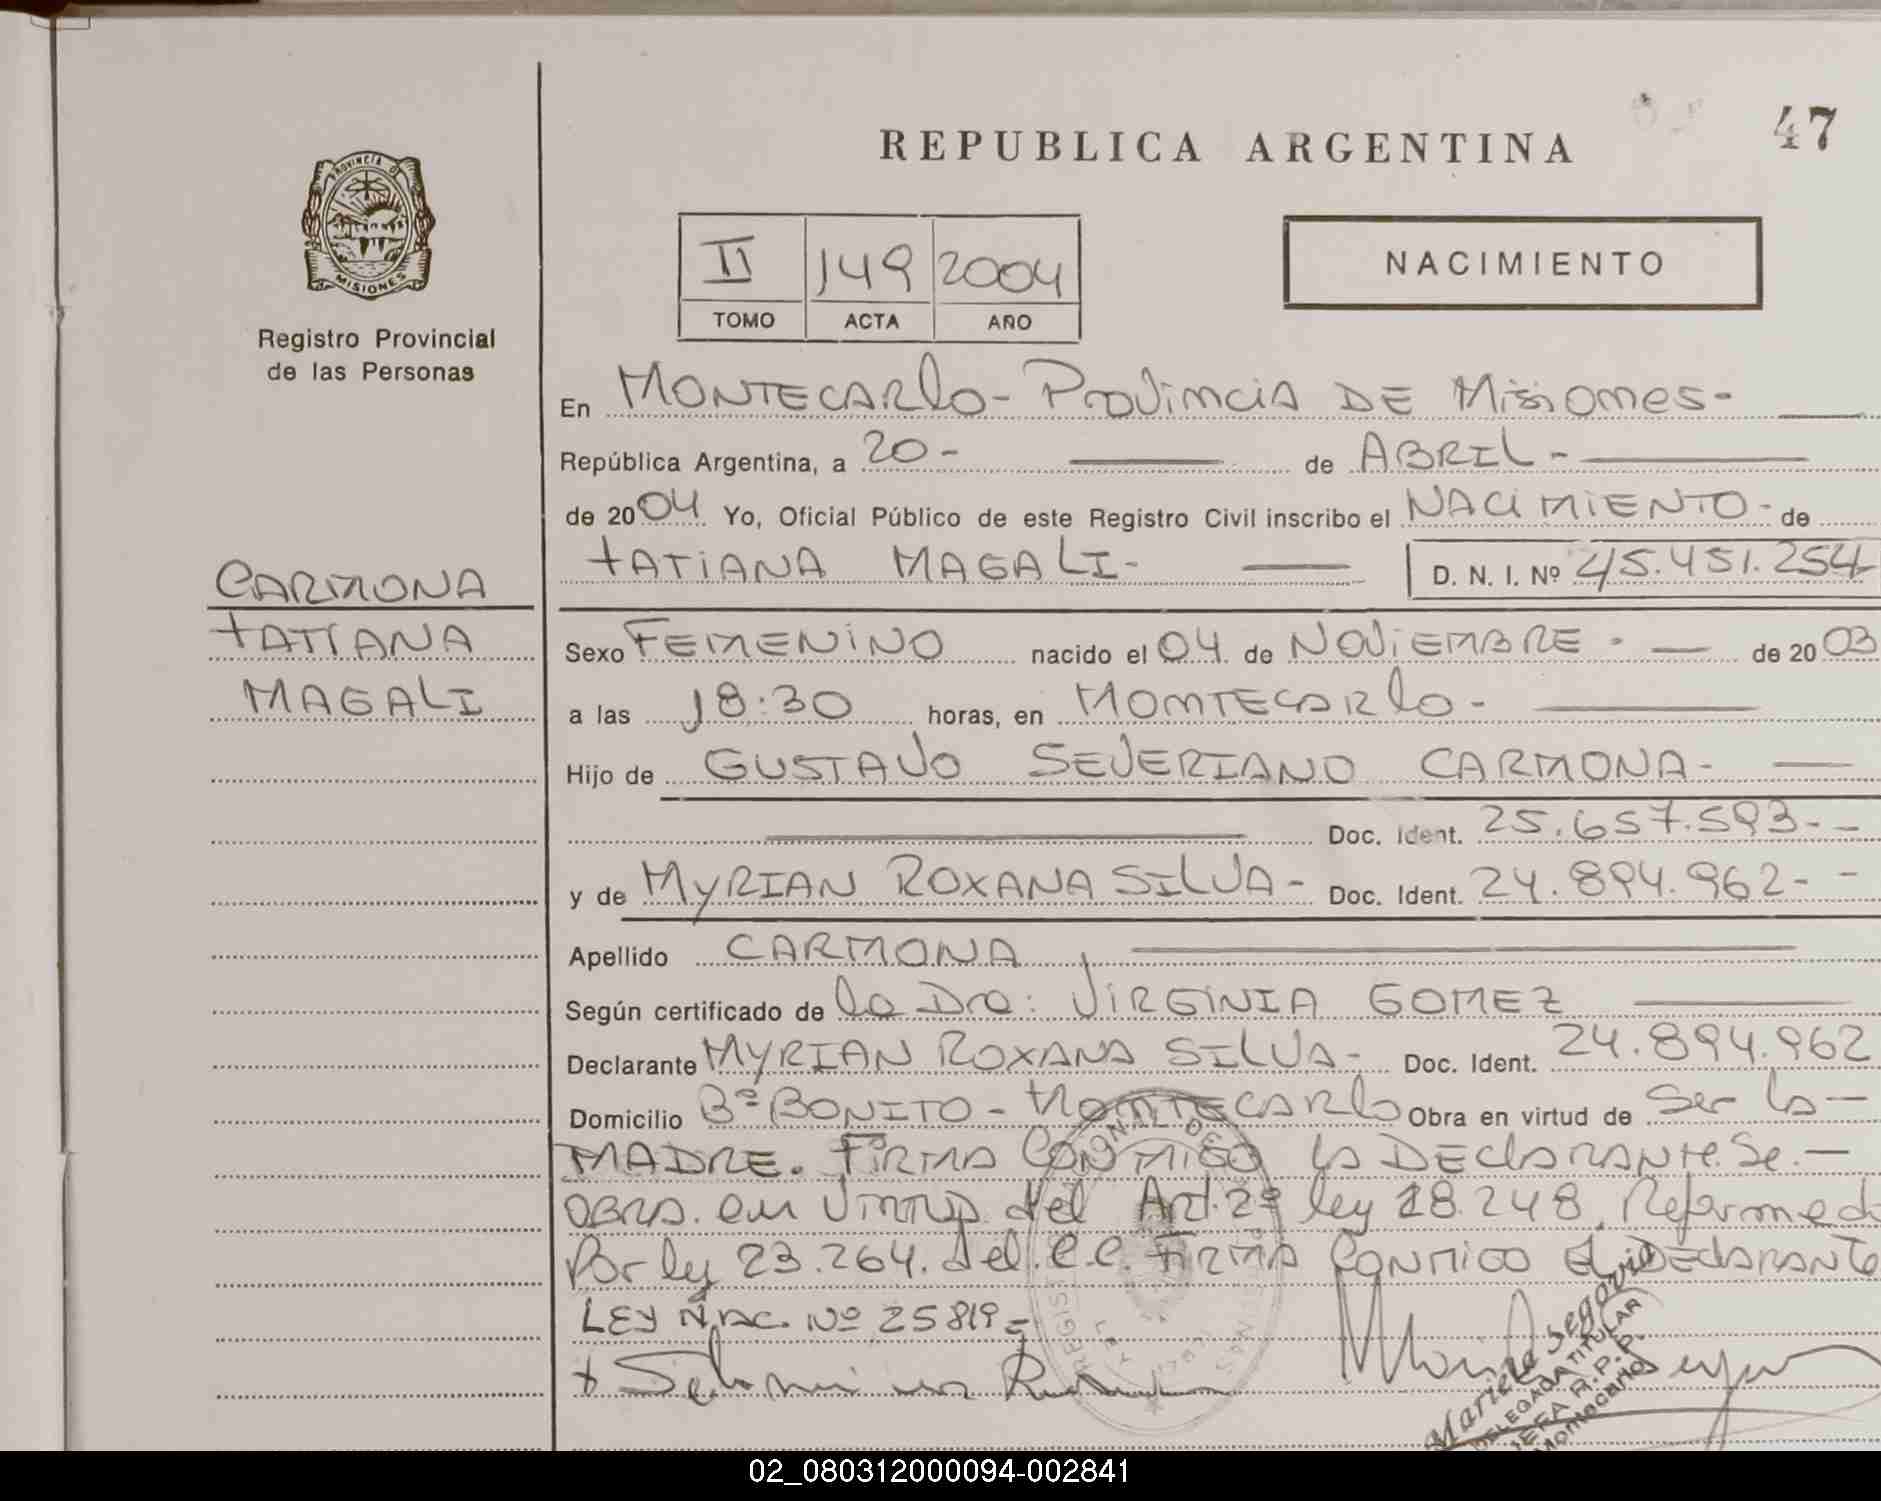 47
REPUBLICA ARGENTINA
PROVINCIA DE
MISIONES
Registro Provincial
de las Personas
II 149 2004
TOMO ACTA AÑO
NACIMIENTO
En MONTECARlo - Provincia DE Misiones -
República Argentina, a 20 - de ABRIL -
de 2004 Yo, Oficial Público de este Registro Civil inscribo el NACIMIENTO - de
TATIANA MAGALI - D. N. I. Nº 45.451.254
CARMONA
TATIANA
MAGALI
Sexo FEMENINO nacido el 04 de NOVIEMBRE - de 2003
a las 18:30 horas, en MONTECARlo -
Hijo de GUSTAVO SEVERIANO CARMONA -
Doc. Ident. 25.657.593 - -
y de MYRIAN ROXANA SILVA - Doc. Ident. 24.894.962 - -
Apellido CARMONA
Según certificado de la Dra: VIRGINIA GOMEZ
Declarante MYRIAN ROXANA SILVA - Doc. Ident. 24.894.962
Domicilio Bº BONITO - MONTECARlo Obra en virtud de Ser la -
MADRE. FIRMA CONMIGO la DEClARANTE. Se. -
OBRA. en VIRTUD del Art. 2º ley 18.248, Reformed
Por ley 23.264. del. C.C. FIRMA CONMIGO El DEClARANTE
LEY NAC. Nº 25819 =
Mariela Segovia
DELEGADA TITULAR
JEFA R.P.P.
Montecarlo
02_080312000094-002841